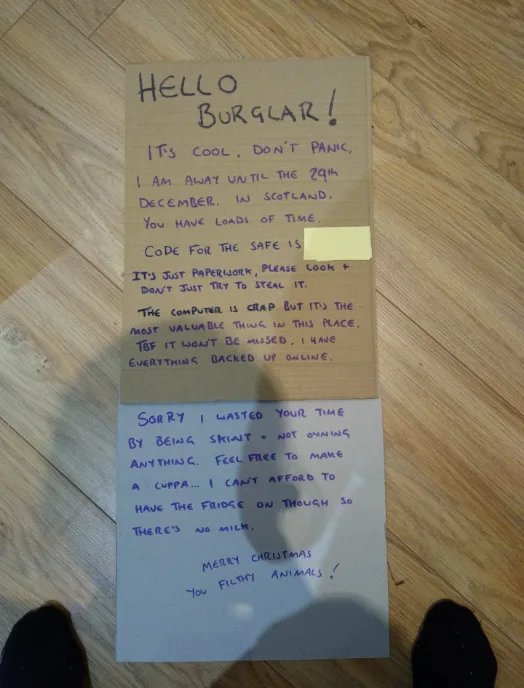 HELLO
BURGLAR!
IT'S COOL, DON'T PANIC,
I AM AWAY UNTIL THE 29th
DECEMBER. IN SCOTLAND.
YOU HAVE LOADS OF TIME.
CODE FOR THE SAFE IS
IT'S JUST PAPERWORK, PLEASE LOOK +
DON'T JUST TRY TO STEAL IT.
THE COMPUTER IS CRAP BUT IT'S THE
MOST VALUABLE THING IN THIS PLACE.
TBF IT WON'T BE MISSED. I HAVE
EVERYTHING BACKED UP ONLINE.
SORRY I WASTED YOUR TIME
BY BEING SKINT + NOT OWNING
ANYTHING. FEEL FREE TO MAKE
A CUPPA... I CAN'T AFFORD TO
HAVE THE FRIDGE ON THOUGH SO
THERE'S NO MILK.
MERRY CHRISTMAS
YOU FILTHY ANIMALS!